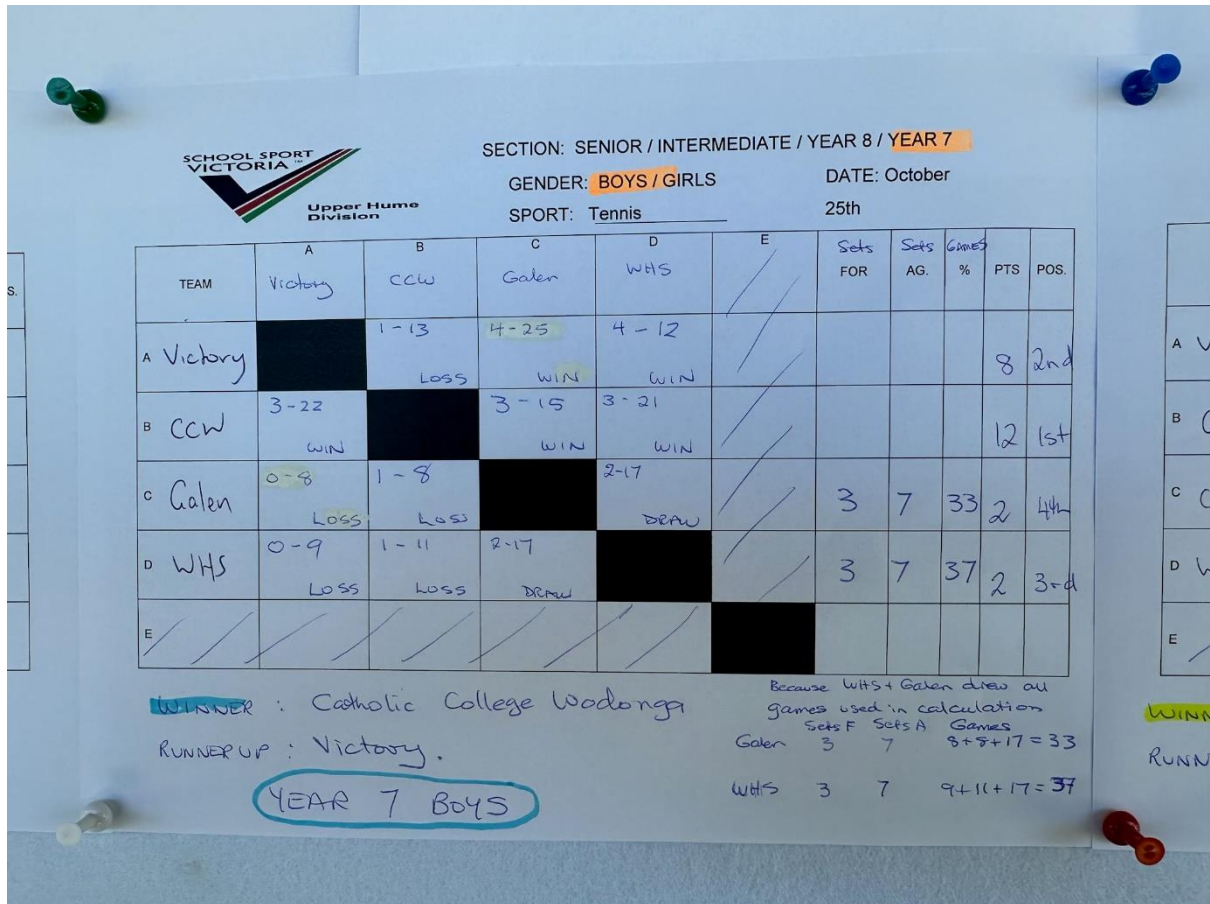 SCHOOL SPORT
VICTORIA
Upper Hume
Division
SECTION: SENIOR / INTERMEDIATE / YEAR 8 / YEAR 7
GENDER: BOYS / GIRLS DATE: October
SPORT: Tennis 25th
TEAM A Victory B CCW C Galen D WHS E Sets FOR Sets AG. GAMES % PTS POS.
A Victory 1-13 LOSS 4-25 WIN 4-12 WIN 8 2nd
B CCW 3-22 WIN 3-15 WIN 3-21 WIN 12 1st
C Galen 0-8 LOSS 1-8 LOSS 2-17 DRAW 3 7 33 2 4th
D WHS 0-9 LOSS 1-11 LOSS 2-17 DRAW 3 7 37 2 3rd
E
WINNER : Catholic College Wodonga
RUNNER UP : Victory.
YEAR 7 BOYS
Because WHS + Galen drew all
games used in calculation
Sets F Sets A Games
Galen 3 7 8+8+17 = 33
WHS 3 7 9+11+17 = 37
S.
A V
B C
C
D
E
WINN
RUNN